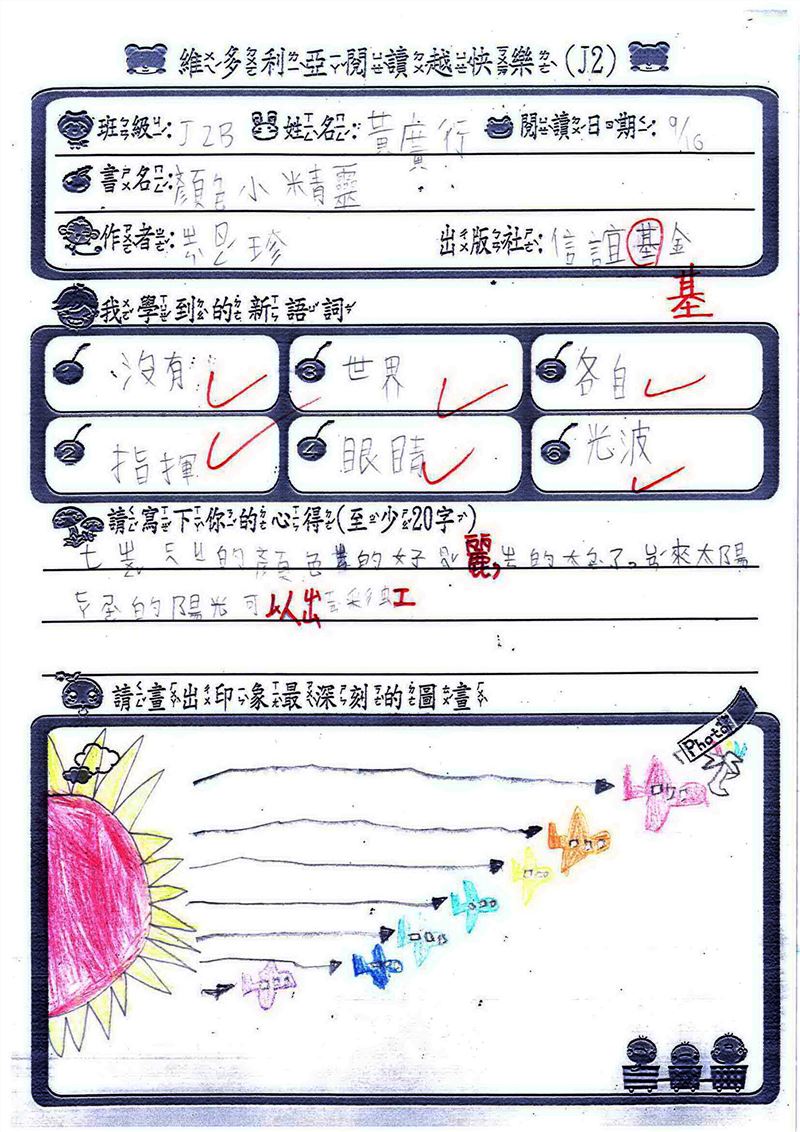 維多利亞閱讀越快樂(J2)
班級: J2B 姓名: 黃廣行 閱讀日期: 9/16
書名: 顏色小精靈
作者: 崇 珍 出版社: 信誼基金
基
我學到的新語詞
沒有 3 世界 5 各自
2 指揮 4 眼睛 6 光波
請寫下你的心得(至少20字)
的顏色 的好 麗, 的 了。 來太陽
的陽光可以出 彩虹
請畫出印象最深刻的圖畫
Photo